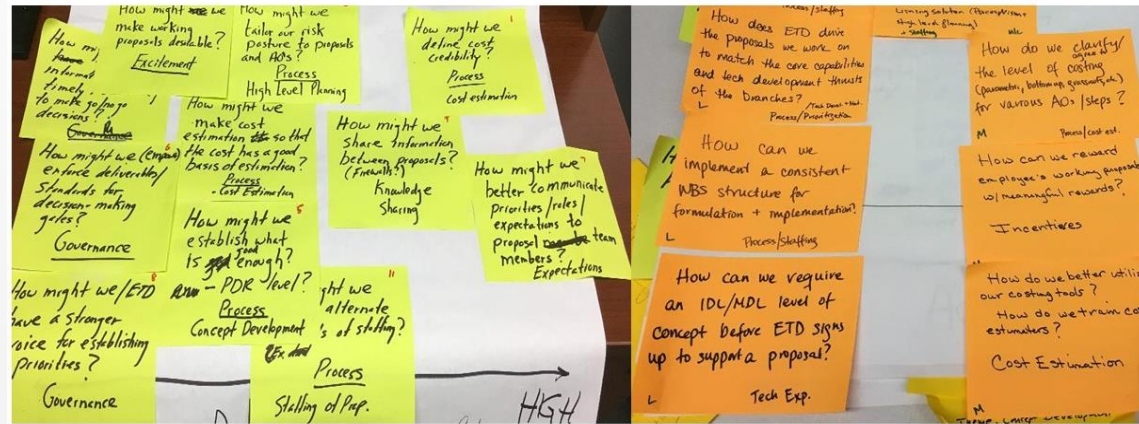 How might we
make working
proposals desirable?
Excitement
How might we
tailor our risk
posture to proposals
and AOs?
Process
High Level Planning
1
How might we
define cost
credibility?
Process
Cost estimation
How mi
informat
timely
to make go/no go
decisions?
Governance
How might we
make cost
estimation so that
the cost has a good
basis of estimation?
Process
- Cost Estimation
How might we
share information
between proposals?
(Firewalls?)
Knowledge
Sharing
How might we
enforce deliverable/
standards for
decision-making
gates?
Governance
7
How might we
better communicate
priorities/roles/
expectations to
proposal team
members?
Expectations
5
How might we
establish what
is good enough?
- PDR level?
Process
Concept Development
How might we/ETD
have a stronger
voice for establishing
priorities?
Governance
11
ght we
alternate
s of staffing?
Process
Staffing of Prop.
HGH
Process/Staffing
How does ETD drive
the proposals we work on
to match the core capabilities
and tech development thrusts
of the branches?
L
Process/Prioritization
How can we
implement a consistent
WBS structure for
formulation + implementation?
L
Process/Staffing
How can we require
an IDL/MDL level of
concept before ETD signs
up to support a proposal?
L
Tech Exp.
+ Staffing
How do we clarify/
agree to
the level of costing
(parametric, bottom up, grassroots, etc.)
for various AOs/steps?
M
Process/cost est.
How can we reward
employee's working proposals
w/meaningful rewards?
Incentives
M
How do we better utiliz
our costing tools?
How do we train co
estimators?
Cost Estimation
M
Concept Development